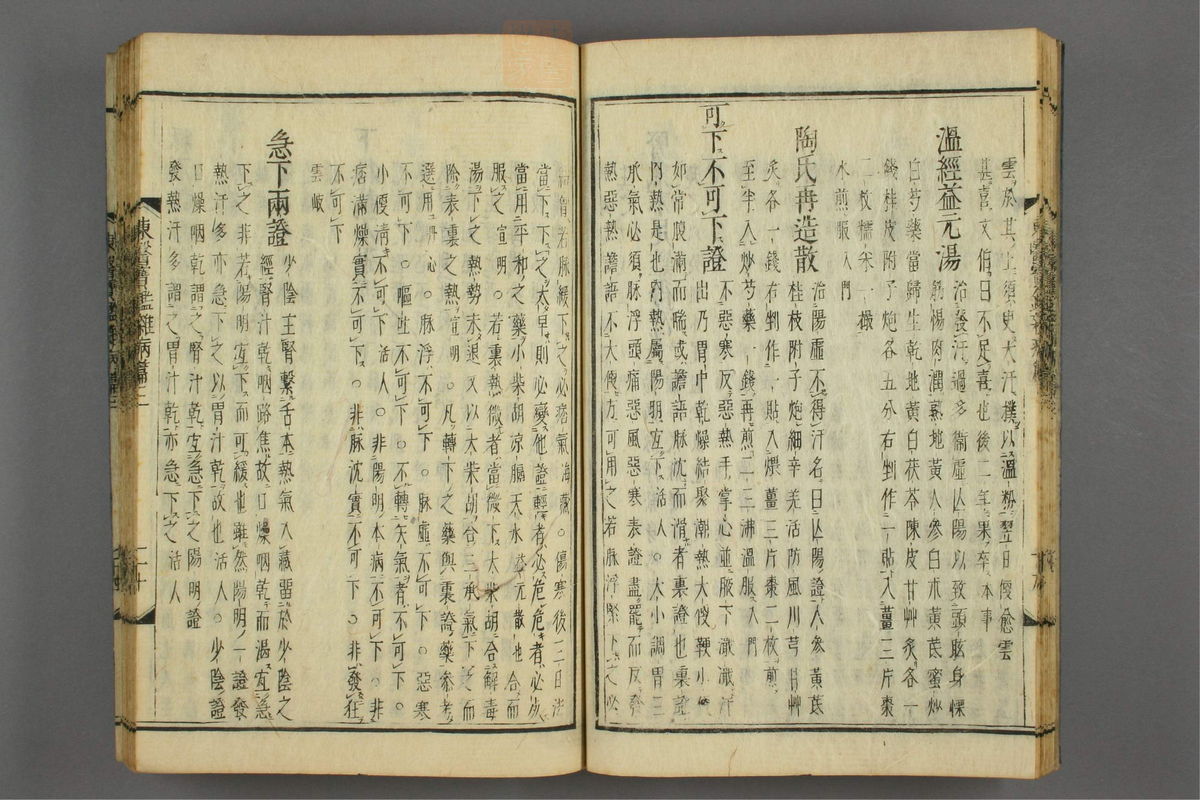 雲於其上須臾大汗撲以溫粉翌日愈雲
甚喜文伯曰不足喜也後二年果卒本事
溫經益元湯 治發汗過多衛虛亡陽以致頭眩身慄
筋惕肉瞤熟地黃人參白朮黃芪蜜炒
白芍藥當歸生乾地黃白茯苓陳皮甘艸炙各一
錢桂皮附子炮各五分右剉作一貼入薑三片棗
二枚糯米一撮
水煎服入門
陶氏再造散 治陽虛不得汗名曰亡陽證人參黃芪
桂枝附子炮細辛羌活防風川芎甘艸
炙各一錢右剉作一貼入煨薑三片棗二枚煎
至半入炒芍藥一錢再煎二三沸溫服入門
可下不可下證 不惡寒反惡熱手掌心並腋下濈濈汗
出乃胃中乾燥結聚潮熱大便鞕小便
如常腹滿而喘或譫語脉沈而滑者裏證也裏證
內熱是也內熱屬陽明宜下活人○大小調胃三
承氣必須脉浮頭痛惡風惡寒表證盡罷而反發
熱惡熱譫語不大便方可用之若脉浮緊下之必
當下下之太早則必變他證輕者必危危者必
當用平和之藥小柴胡涼膈天水益元散也合而
服之宣明○若裏熱微者當微下大柴胡合解毒
湯下之熱勢未退又以大柴胡合三承氣下之而
除表裏之熱宣明○凡轉下之藥與裏證藥參考
選用丹心○脉浮不可下○脉虛不可下○惡寒
不可下○嘔吐不可下○不轉矢氣者不可下○
小便淸不可下活人○非陽明本病不可下○非
痞滿燥實不可下○非脉沈實不可下○非發狂
不可下
雲岐
急下兩證 少陰主腎繫舌本熱氣入藏留於少陰之
經腎汁乾咽路焦故口燥咽乾而渴宜急
下之非若陽明宜下而可緩也雖然陽明一證發
熱汗多亦急下之以胃汁乾故也活人○少陰證
口燥咽乾謂之腎汁乾宜急下之陽明證
發熱汗多謂之胃汁乾亦急下之活人
東醫寶鑑雜病篇二 二十